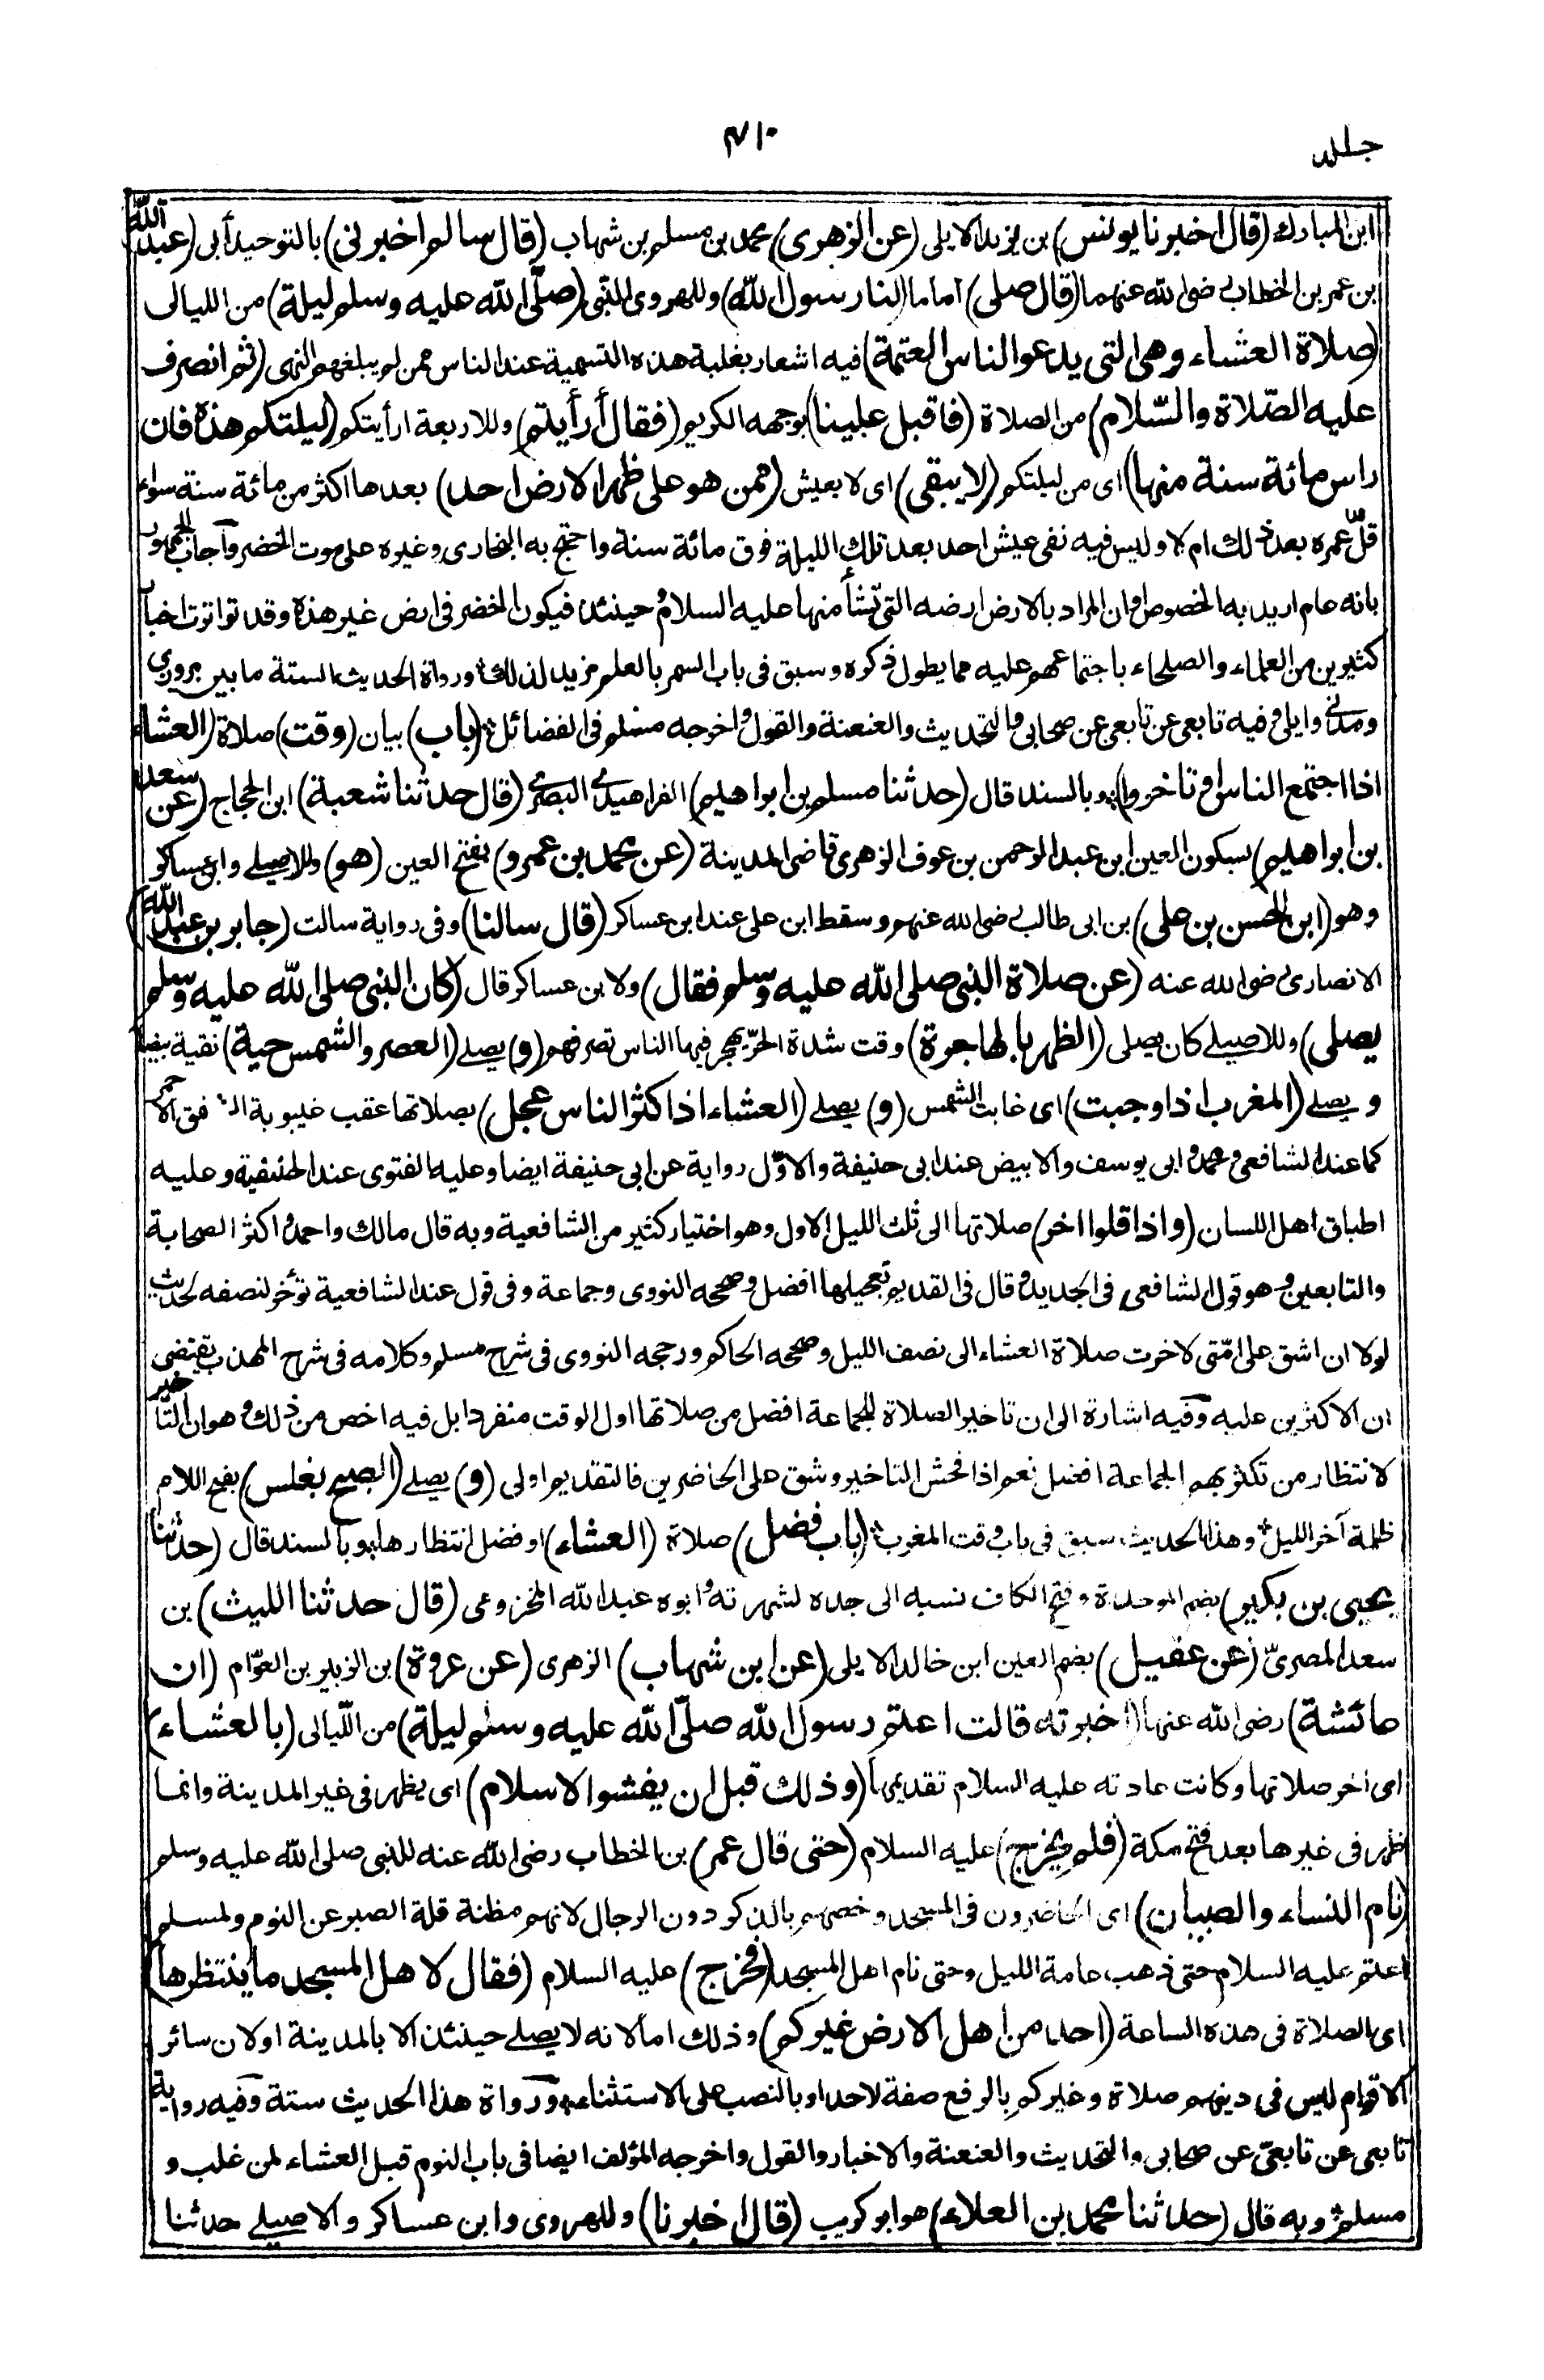 جلد
٤١٠
ابن المبارك (قال اخبرنا يونس) بن يزيد الايلى (عن الزهرى) محمد بن مسلم بن شهاب (قال سالم اخبرنى) بالتوحيد أبى (عبد الله
بن عمر بن الخطاب رضى الله عنهما (قال صلى) اماما (لنا رسول الله) وللهروى النبى (صلّى الله عليه وسلم ليلة) من الليالى
(صلاة العشاء وهى التى يدعو الناس العتمة) فيه اشعار بغلبة هذه التسمية عند الناس ممن لم يبلغهم النهى (ثم انصرف
عليه الصّلاة والسّلام) من الصلاة (فاقبل علينا) بوجهه الكريم (فقال أرأيتم) وللاربعة ارأيتكم (ليلتكم هذه فان
راس مائة سنة منها) اى من ليلتكم (لا يبقى) اى لا يعيش (ممن هو على ظهر الارض احد) بعدها اكثر من مائة سنة سواء
قلّ عمره بعد ذلك ام لا وليس فيه نفى عيش احد بعد تلك الليلة فوق مائة سنة واحتج به البخارى وغيره على موت الخضر وأجاب الجمهور
بانه عام اريد به الخصوص او ان المراد بالارض ارضه التى نشأ منها عليه السلام وحينئذ فيكون الخضر فى ارض غير هذه وقد تواترت اخبار
كثيرين من العلماء والصلحاء باجتماعهم عليه مما يطول ذكره وسبق فى باب السمر بالعلم مزيد لذلك ورواة الحديث الستة ما بين مروزى
ومدنى وايلى وفيه تابعى عن تابعى عن صحابى والتحديث والعنعنة والقول واخرجه مسلم فى الفضائل (باب) بيان (وقت) صلاة (العشاء
اذا اجتمع الناس او تاخروا) وبالسند قال (حدثنا مسلم بن ابراهيم) الفراهيدى البصرى (قال حدثنا شعبة) ابن الحجاج (عن سعد
بن ابراهيم) بسكون العين ابن عبد الرحمن بن عوف الزهرى قاضى المدينة (عن محمد بن عمرو) بفتح العين (هو) وللاصيلى وابن عساكر
وهو (ابن الحسن بن على) بن ابى طالب رضى الله عنهم وسقط ابن على عند ابن عساكر (قال سالنا) وفى رواية سالت (جابر بن عبد الله)
الانصارى رضى الله عنه (عن صلاة النبى صلى الله عليه وسلم فقال) ولابن عساكر قال (كان النبى صلى الله عليه وسلم
يصلى) وللاصيلى كان يصلى (الظهر بالهاجرة) وقت شدة الحرّ يهجر فيها الناس تصرفهم (و) يصلى (العصر والشمس حية) نقية بيضا
و يصلى (المغرب اذا وجبت) اى غابت الشمس (و) يصلى (العشاء اذا كثر الناس عجل) بصلاتها عقب غيبوبة الشفق الاحمر
كما عند الشافعى ومحمد وابى يوسف والابيض عند ابى حنيفة والاوّل رواية عن ابى حنيفة ايضا وعليه الفتوى عند الحنفية وعليه
اطباق اهل اللسان (واذا قلوا اخر) صلاتها الى ثلث الليل الاول وهو اختيار كثير من الشافعية وبه قال مالك واحمد واكثر الصحابة
والتابعين وهو قول الشافعى فى الجديد وقال فى القديم تعجيلها افضل وصححه النووى وجماعة وفى قول عند الشافعية تؤخر لنصفه لحديث
لولا ان اشق على امّتى لاخرت صلاة العشاء الى نصف الليل وصححه الحاكم ورجحه النووى فى شرح مسلم وكلامه فى شرح المهذب يقتضى
ان الاكثرين عليه وفيه اشارة الى ان تاخير الصلاة للجماعة افضل من صلاتها اول الوقت منفردا بل فيه اخص من ذلك وهو ان التأخير
لانتظار من تكثر بهم الجماعة افضل نعم اذا فحش التاخير وشق على الحاضرين فالتقديم اولى (و) يصلى (الصبح بغلس) بفتح اللام
ظلمة آخر الليل وهذا الحديث سبق فى باب وقت المغرب (باب فضل) صلاة (العشاء) او فضل انتظارها وبالسند قال (حدثنا
يحيى بن بكير) بضم الموحدة وفتح الكاف نسبه الى جده لشهرته وابوه عبد الله المخزومى (قال حدثنا الليث) بن
سعد المصرىّ (عن عقيل) بضم العين ابن خالد الايلى (عن ابن شهاب) الزهرى (عن عروة) بن الزبير بن العوّام (ان
عائشة) رضى الله عنها (اخبرته قالت اعتم رسول الله صلّى الله عليه وسلم ليلة) من اللّيالى (بالعشاء)
اى اخر صلاتها وكانت عادته عليه السلام تقديمها (وذلك قبل ان يفشو الاسلام) اى يظهر فى غير المدينة وانما
ظهر فى غيرها بعد فتح مكة (فلم يخرج) عليه السلام (حتى قال عمر) بن الخطاب رضى الله عنه للنبى صلى الله عليه وسلم
(نام النساء والصبيان) اى الحاضرون فى المسجد وخصهم بالذكر دون الرجال لانهم مظنة قلة الصبر عن النوم ولمسلم
اعتم عليه السلام حتى ذهب عامة الليل وحتى نام اهل المسجد (فخرج) عليه السلام (فقال لاهل المسجد ما ينتظرها)
اى الصلاة فى هذه الساعة (احد من اهل الارض غيركم) وذلك اما لانه لا يصلى حينئذ الا بالمدينة اولان سائر
الاقوام ليس فى دينهم صلاة وغيركم بالرفع صفة لاحد او بالنصب على الاستثناء ورواة هذا الحديث ستة وفيه رواية
تابعى عن تابعىّ عن صحابى والتحديث والعنعنة والاخبار والقول واخرجه المؤلف ايضا فى باب النوم قبل العشاء لمن غلب و
مسلم وبه قال (حدثنا محمد بن العلاء) هو ابو كريب (قال اخبرنا) وللهروى وابن عساكر والاصيلى حدثنا